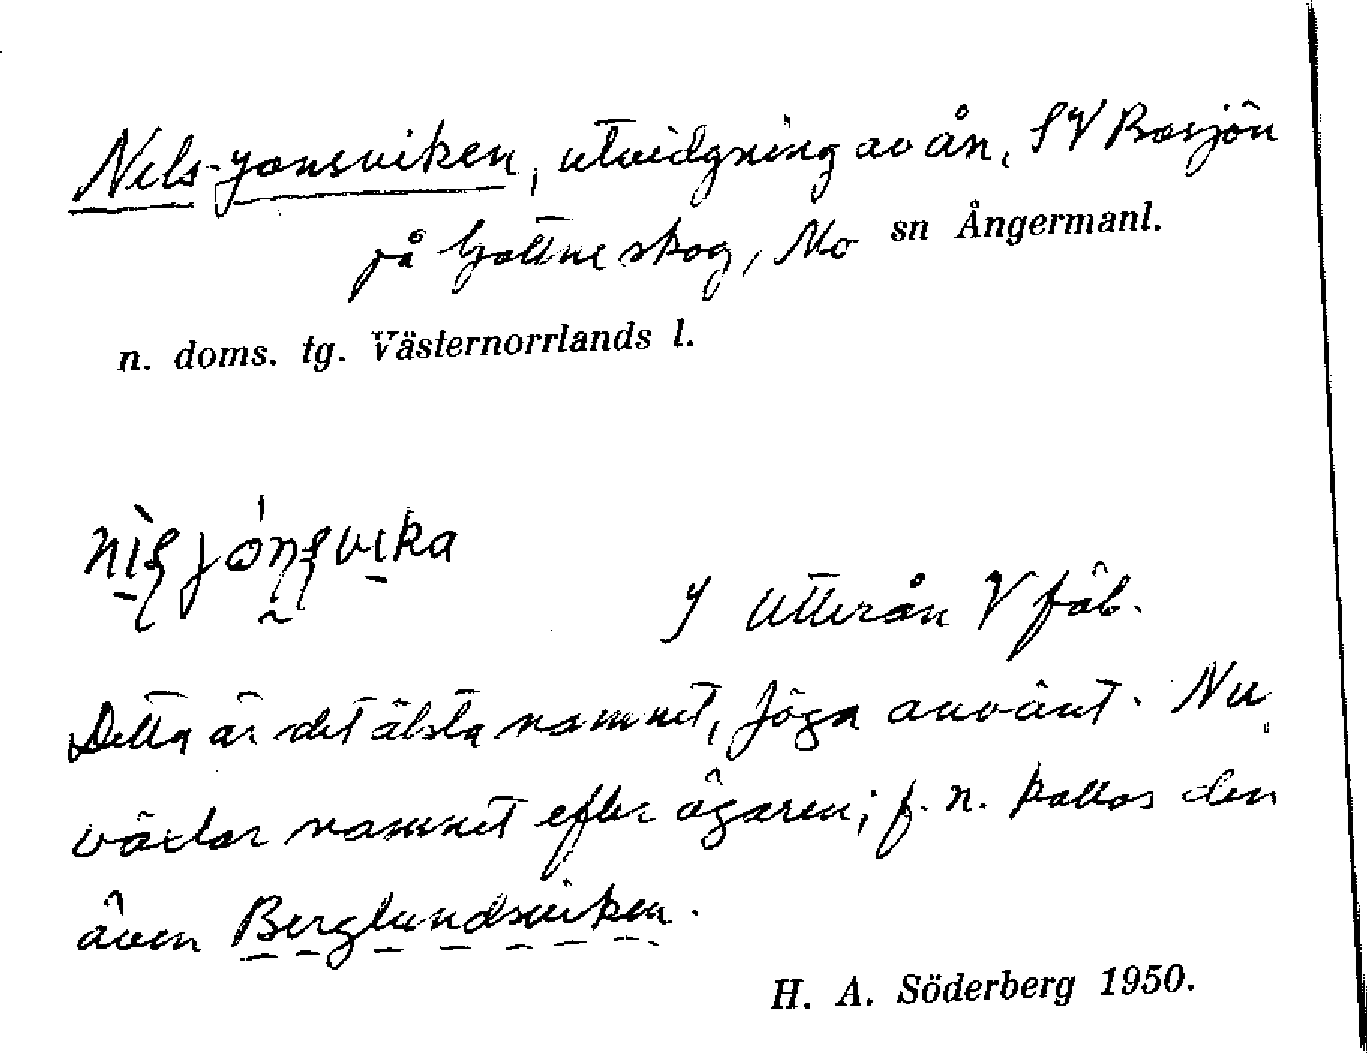 Nils-Jonsviken, utvidgning av ån, SV Rosjön
på Gottne skog, Mo sn Ångermanl.
n. doms. tg. Västernorrlands l.
I Utterån V fäb.
Detta är det älsta namnet, föga använt. Nu
växlar namnet efter ägaren; f. n. kallas den
även Berglundsviken.
H. A. Söderberg 1950.